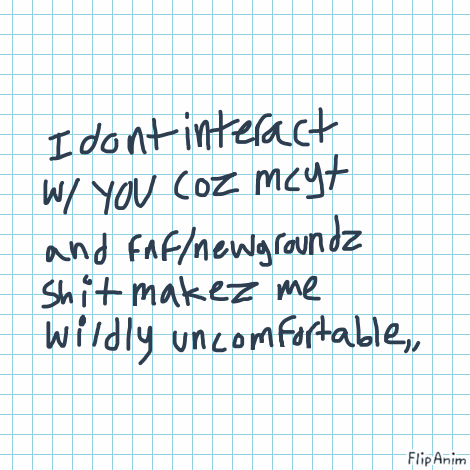 I dont interact
w/ YOU coz mcyt
and fnf/newgroundz
shit makez me
wildly uncomfortable,,
FlipAnim